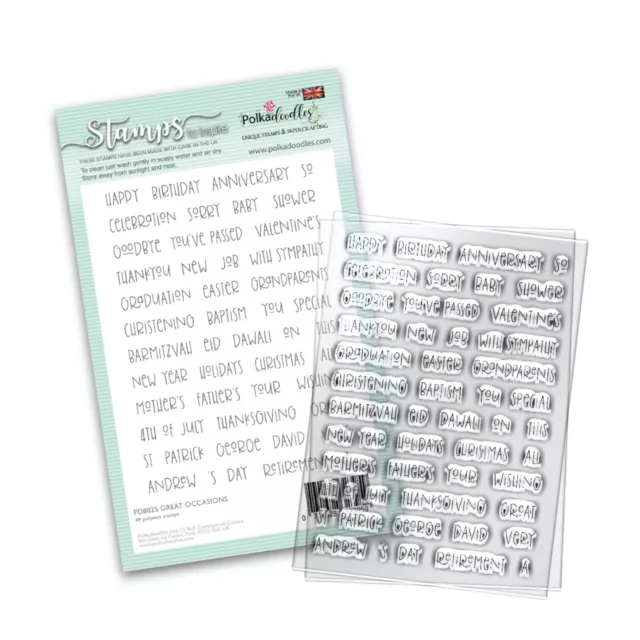 Stamps to inspire
MADE IN THE UK
Polkadoodles
UNIQUE STAMPS & PAPERCRAFTING
www.polkadoodles.com
THESE STAMPS HAVE BEEN MADE WITH CARE IN THE UK
To clean just wash gently in soapy water and air dry.
Store away from sunlight and heat.
HAPPY BIRTHDAY ANNIVERSARY SO
CELEBRATION SORRY BABY SHOWER
GOODBYE YOU'VE PASSED VALENTINE'S
THANKYOU NEW JOB WITH SYMPATHY
GRADUATION EASTER GRANDPARENTS
CHRISTENING BAPTISM YOU SPECIAL
BARMITZVAH EID DAWALI ON THIS
NEW YEAR HOLIDAYS CHRISTMAS ALL
MOTHER'S FATHER'S YOUR WISHIN
4TH OF JULY THANKSGIVING GR
ST PATRICK GEORGE DAVID
ANDREW 'S DAY RETIREMEN
PD8025 GREAT OCCASIONS
49 polymer stamps
HAPPY BIRTHDAY ANNIVERSARY SO
CELEBRATION SORRY BABY SHOWER
GOODBYE YOU'VE PASSED VALENTINE'S
THANKYOU NEW JOB WITH SYMPATHY
GRADUATION EASTER GRANDPARENTS
CHRISTENING BAPTISM YOU SPECIAL
BARMITZVAH EID DAWALI ON THIS
NEW YEAR HOLIDAYS CHRISTMAS ALL
MOTHER'S FATHER'S YOUR WISHING
4TH OF JULY THANKSGIVING GREAT
ST PATRICK GEORGE DAVID VERY
ANDREW 'S DAY RETIREMENT A